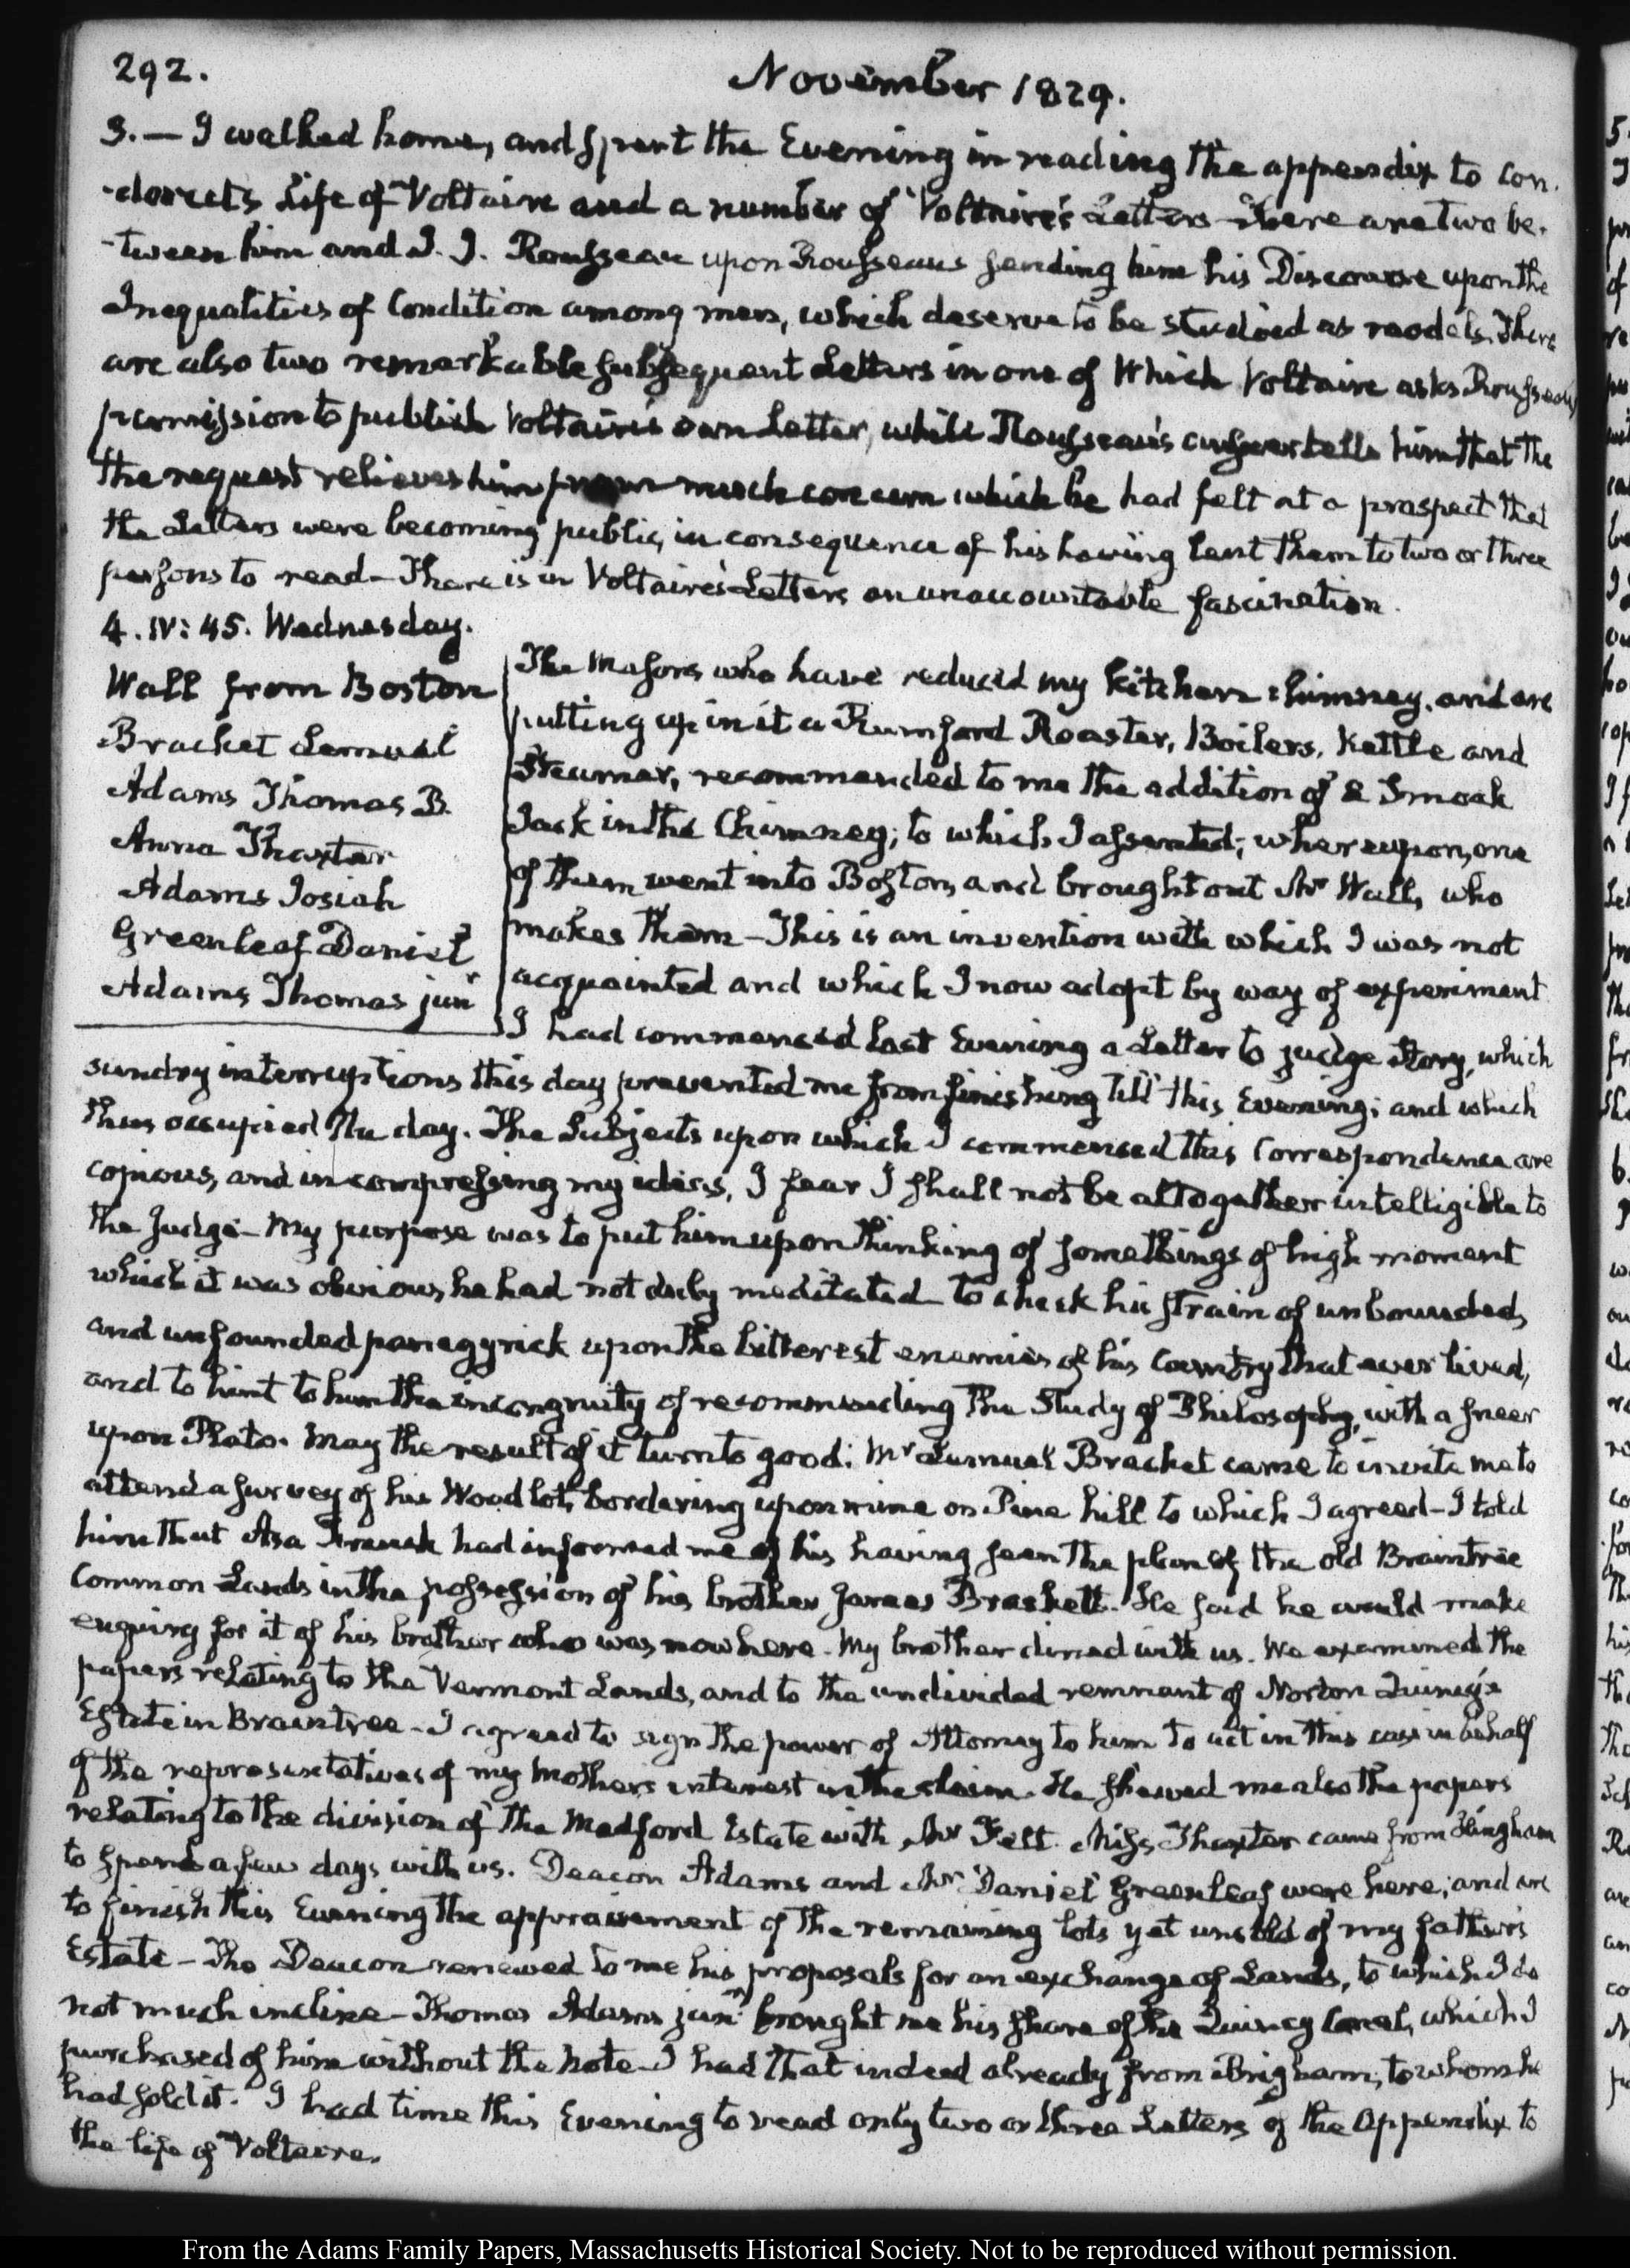 292.
November 1829.
3.— I walked home, and spent the Evening in reading the appendix to Con-
-dorcets Life of Voltaire and a number of Voltaire's Letters There are two be-
-tween him and J. J. Rousseau upon Rousseaus sending him his Discourse upon the
Inequalities of Condition among men, which deserve to be studied as models. There
are also two remarkable subsequent Letters in one of Which Voltaire asks Rousseau's
permission to publish Voltaire's own Letter, while Rousseau's answer tells him that the
the request relieves him from much concern which he had felt at a prospect that
the Letters were becoming public, in consequence of his having lent them to two or three
persons to read — There is in Voltaire's Letters an unaccountable fascination.
4. IV: 45. Wednesday.
Wall from Boston
Bracket Lemuel
Adams Thomas B.
Anna Thaxter
Adams Josiah
Greenleaf Daniel
Adams Thomas junr
The Masons who have reduced my kitchen chimney, and are
putting up in it a Rumford Roaster, Boilers, Kettle and
Steamer, recommended to me the addition of a Smoak
Jack in the Chimney; to which I assented; whereupon, one
of them went into Boston, and brought out Mr Wall, who
makes them — This is an invention with which I was not
acquainted and which I now adopt by way of experiment
I had commenced last Evening a Letter to Judge Story, which
sundry interruptions this day prevented me from finishing till this Evening; and which
thus occupied the day. The Subjects upon which I commenced this Correspondence are
copious, and in compressing my ideas, I fear I shall not be altogether intelligible to
the Judge — My purpose was to put him upon thinking of some things of high moment
which it was obvious, he had not duly meditated — to check his strain of unbounded,
and unfounded panegyrick upon the bitterest enemies of his Country that ever lived,
and to hint to him the incongruity of recommending the Study of Philosophy, with a sneer
upon Plato. May the result of it turn to good: Mr Lemuel Bracket came to invite me to
attend a survey of his Wood lot, bordering upon mine on Pine hill to which I agreed — I told
him that Asa French had informed me of his having seen the plan of the old Braintree
Common Lands in the possession of his brother James Brackett. He said he would make
enquiry for it of his brother who was now here. My brother dined with us. We examined the
papers relating to the Vermont Lands, and to the undivided remnant of Norton Quincy's
Estate in Braintree — I agreed to sign the power of Attorney to him to act in this case in behalf
of the representatives of my Mothers interest in the claim. He shewed me also the papers
relating to the division of the Medford Estate with Mr Felt. Miss Thaxter came from Hingham
to spend a few days with us. Deacon Adams and Mr Daniel Greenleaf were here; and are
to finish this Evening the appraisement of the remaining lots yet unsold of my father's
Estate — The Deacon renewed to me his proposals for an exchange of Lands, to which I do
not much incline — Thomas Adams junr brought me his share of the Quincy Canal, which I
purchased of him without the Note — I had that indeed already from Brigham, to whom he
had sold it. I had time this Evening to read only two or three Letters of the Appendix to
the life of Voltaire.
From the Adams Family Papers, Massachusetts Historical Society. Not to be reproduced without permission.